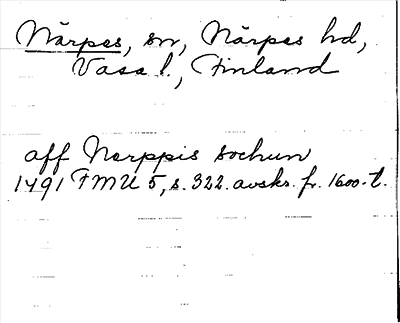 Närpes, sn, Närpes hd,
Vasa l., Finland
aff Nerppis sochun
1491 FMU 5, s. 322. avskr. fr. 1600-t.